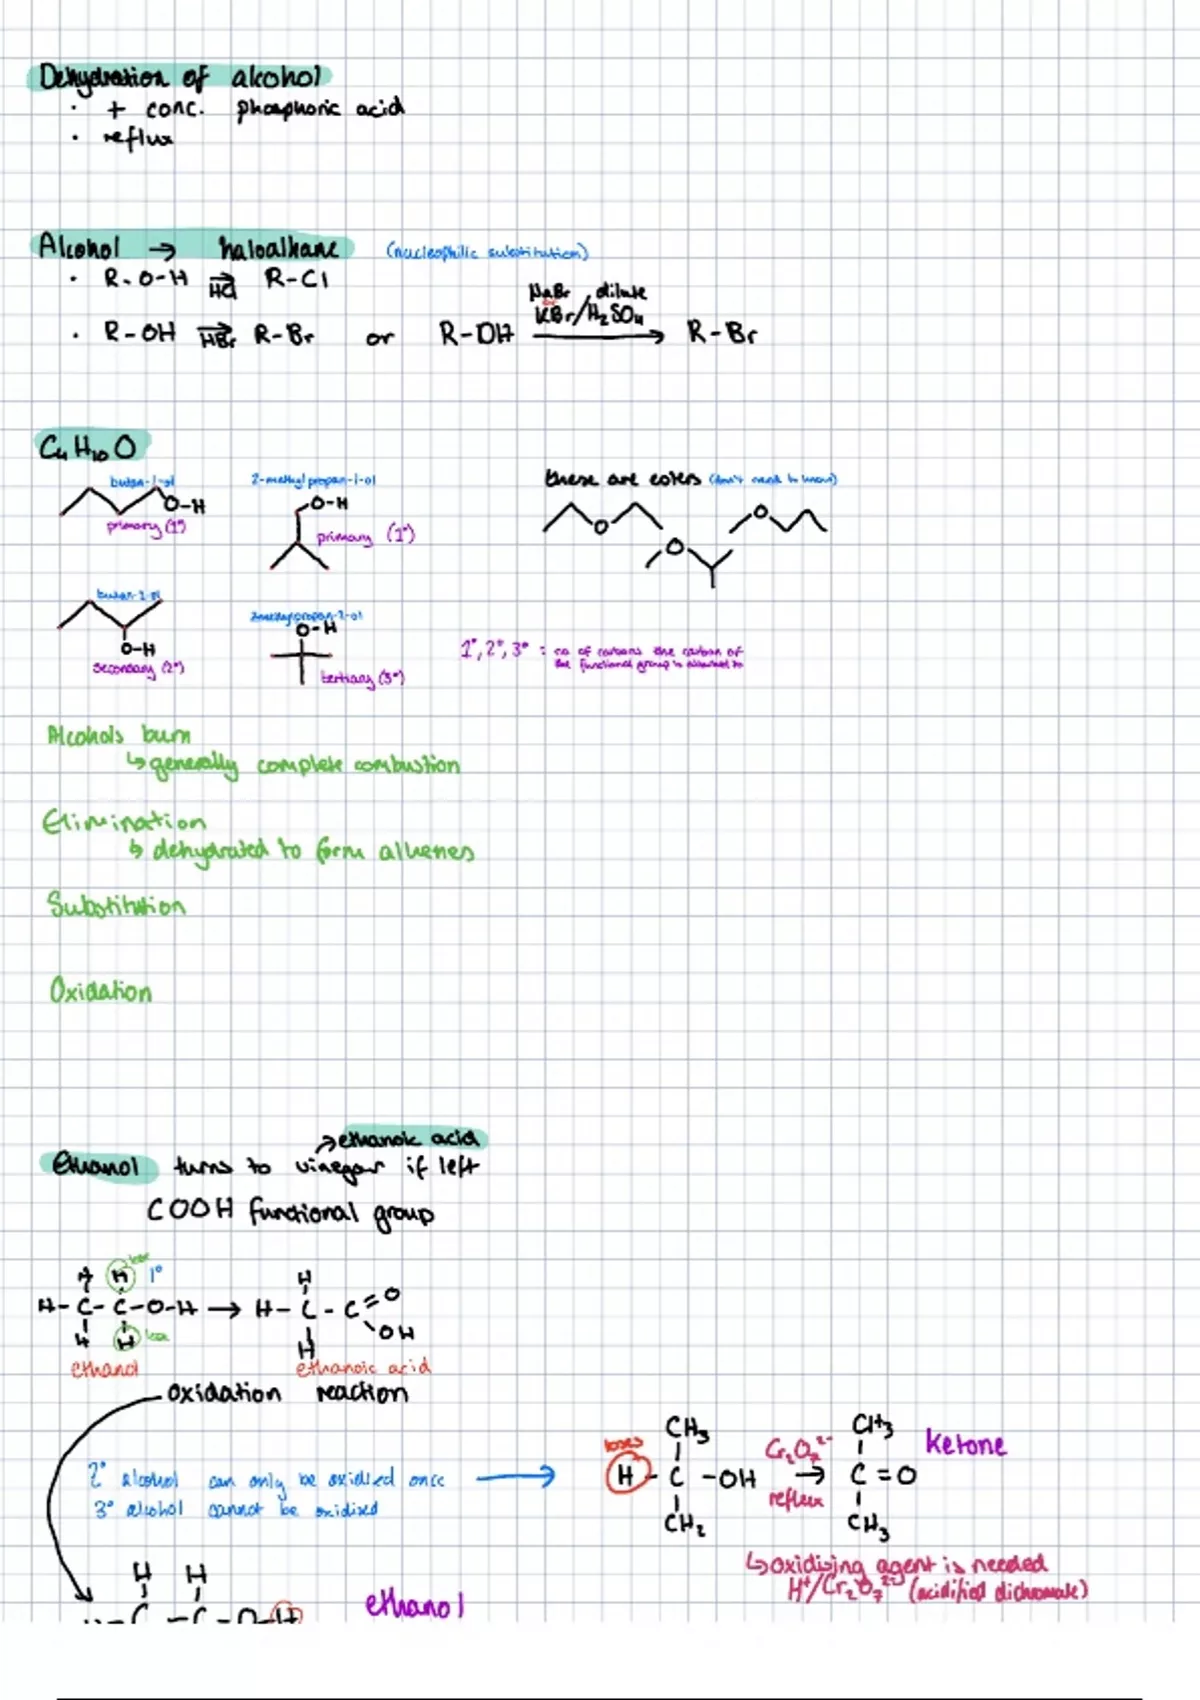 Dehydration of alcohol
· + conc. phosphoric acid
· reflux
Alcohol → haloalkane (nucleophilic substitution)
· R-O-H ⇉ HCl R-Cl
· R-OH ⇉ HBr R-Br or R-OH NaBr or KBr / dilute H₂SO₄ → R-Br
C₄H₁₀O
butan-1-ol
O-H
primary (1°)
2-methylpropan-1-ol
O-H
primary (1°)
these are esters (don't need to know)
O
O
O
butan-2-ol
O-H
secondary (2°)
2methylpropan-2-ol
O-H
tertiary (3°)
1°, 2°, 3° : no of carbons the carbon of
the functional group is attached to
Alcohols burn
↳ generally complete combustion
Elimination
↳ dehydrated to form alkenes
Substitution
Oxidation
↗ ethanoic acid
Ethanol turns to vinegar if left
COOH functional group
H H lose 1°
H-C-C-O-H →
H H lose
ethanol
H
H-C-C=O
OH
H
ethanoic acid
oxidation reaction
2° alcohol can only be oxidised once →
3° alcohol cannot be oxidised
CH₃
loses
H-C-OH
CH₂
Cr₂O₇²⁻
→
reflux
CH₃
C=O
CH₃
ketone
↳ oxidising agent is needed
H⁺/Cr₂O₇²⁻ (acidified dichromate)
H H
H-C-C-O-H
ethanol